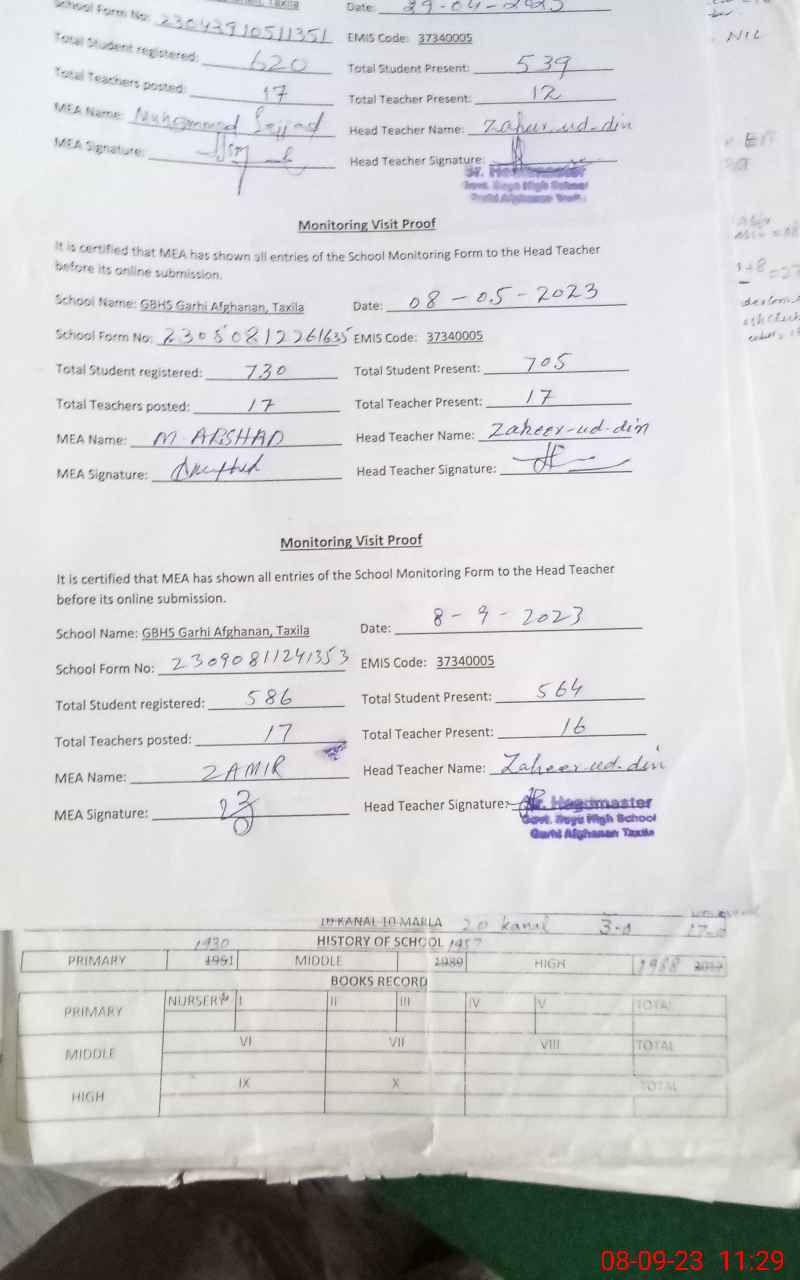 Taxila
Date: 29-04-2023
School Form No: 23042910511351 EMIS Code: 37340005
Total Student registered: 620 Total Student Present: 539
Total Teachers posted: 17 Total Teacher Present: 12
MEA Name: Muhammad Sajjad Head Teacher Name: Zaheer-ud-din
MEA Signature: Head Teacher Signature:
Sr. Headmaster
Govt. Boys High School
Garhi Afghanan Taxila
NIL
Monitoring Visit Proof
It is certified that MEA has shown all entries of the School Monitoring Form to the Head Teacher
before its online submission.
School Name: GBHS Garhi Afghanan, Taxila Date: 08-05-2023
School Form No: 23050812261635 EMIS Code: 37340005
Total Student registered: 730 Total Student Present: 705
Total Teachers posted: 17 Total Teacher Present: 17
MEA Name: M. ARSHAD Head Teacher Name: Zaheer-ud-din
MEA Signature: Head Teacher Signature:
Monitoring Visit Proof
It is certified that MEA has shown all entries of the School Monitoring Form to the Head Teacher
before its online submission.
School Name: GBHS Garhi Afghanan, Taxila Date: 8-9-2023
School Form No: 23090811241353 EMIS Code: 37340005
Total Student registered: 586 Total Student Present: 564
Total Teachers posted: 17 Total Teacher Present: 16
MEA Name: ZAMIR Head Teacher Name: Zaheer-ud-din
MEA Signature: Head Teacher Signature:
Sr. Headmaster
Govt. Boys High School
Garhi Afghanan Taxila
19 KANAL 10 MARLA 20 kanal 3-0 17-0
1930 HISTORY OF SCHOOL 1957
PRIMARY 1951 MIDDLE 1989 HIGH 1988
BOOKS RECORD
PRIMARY NURSERY I II III IV V TOTAL
MIDDLE VI VII VIII TOTAL
HIGH IX X TOTAL
08-09-23 11:29